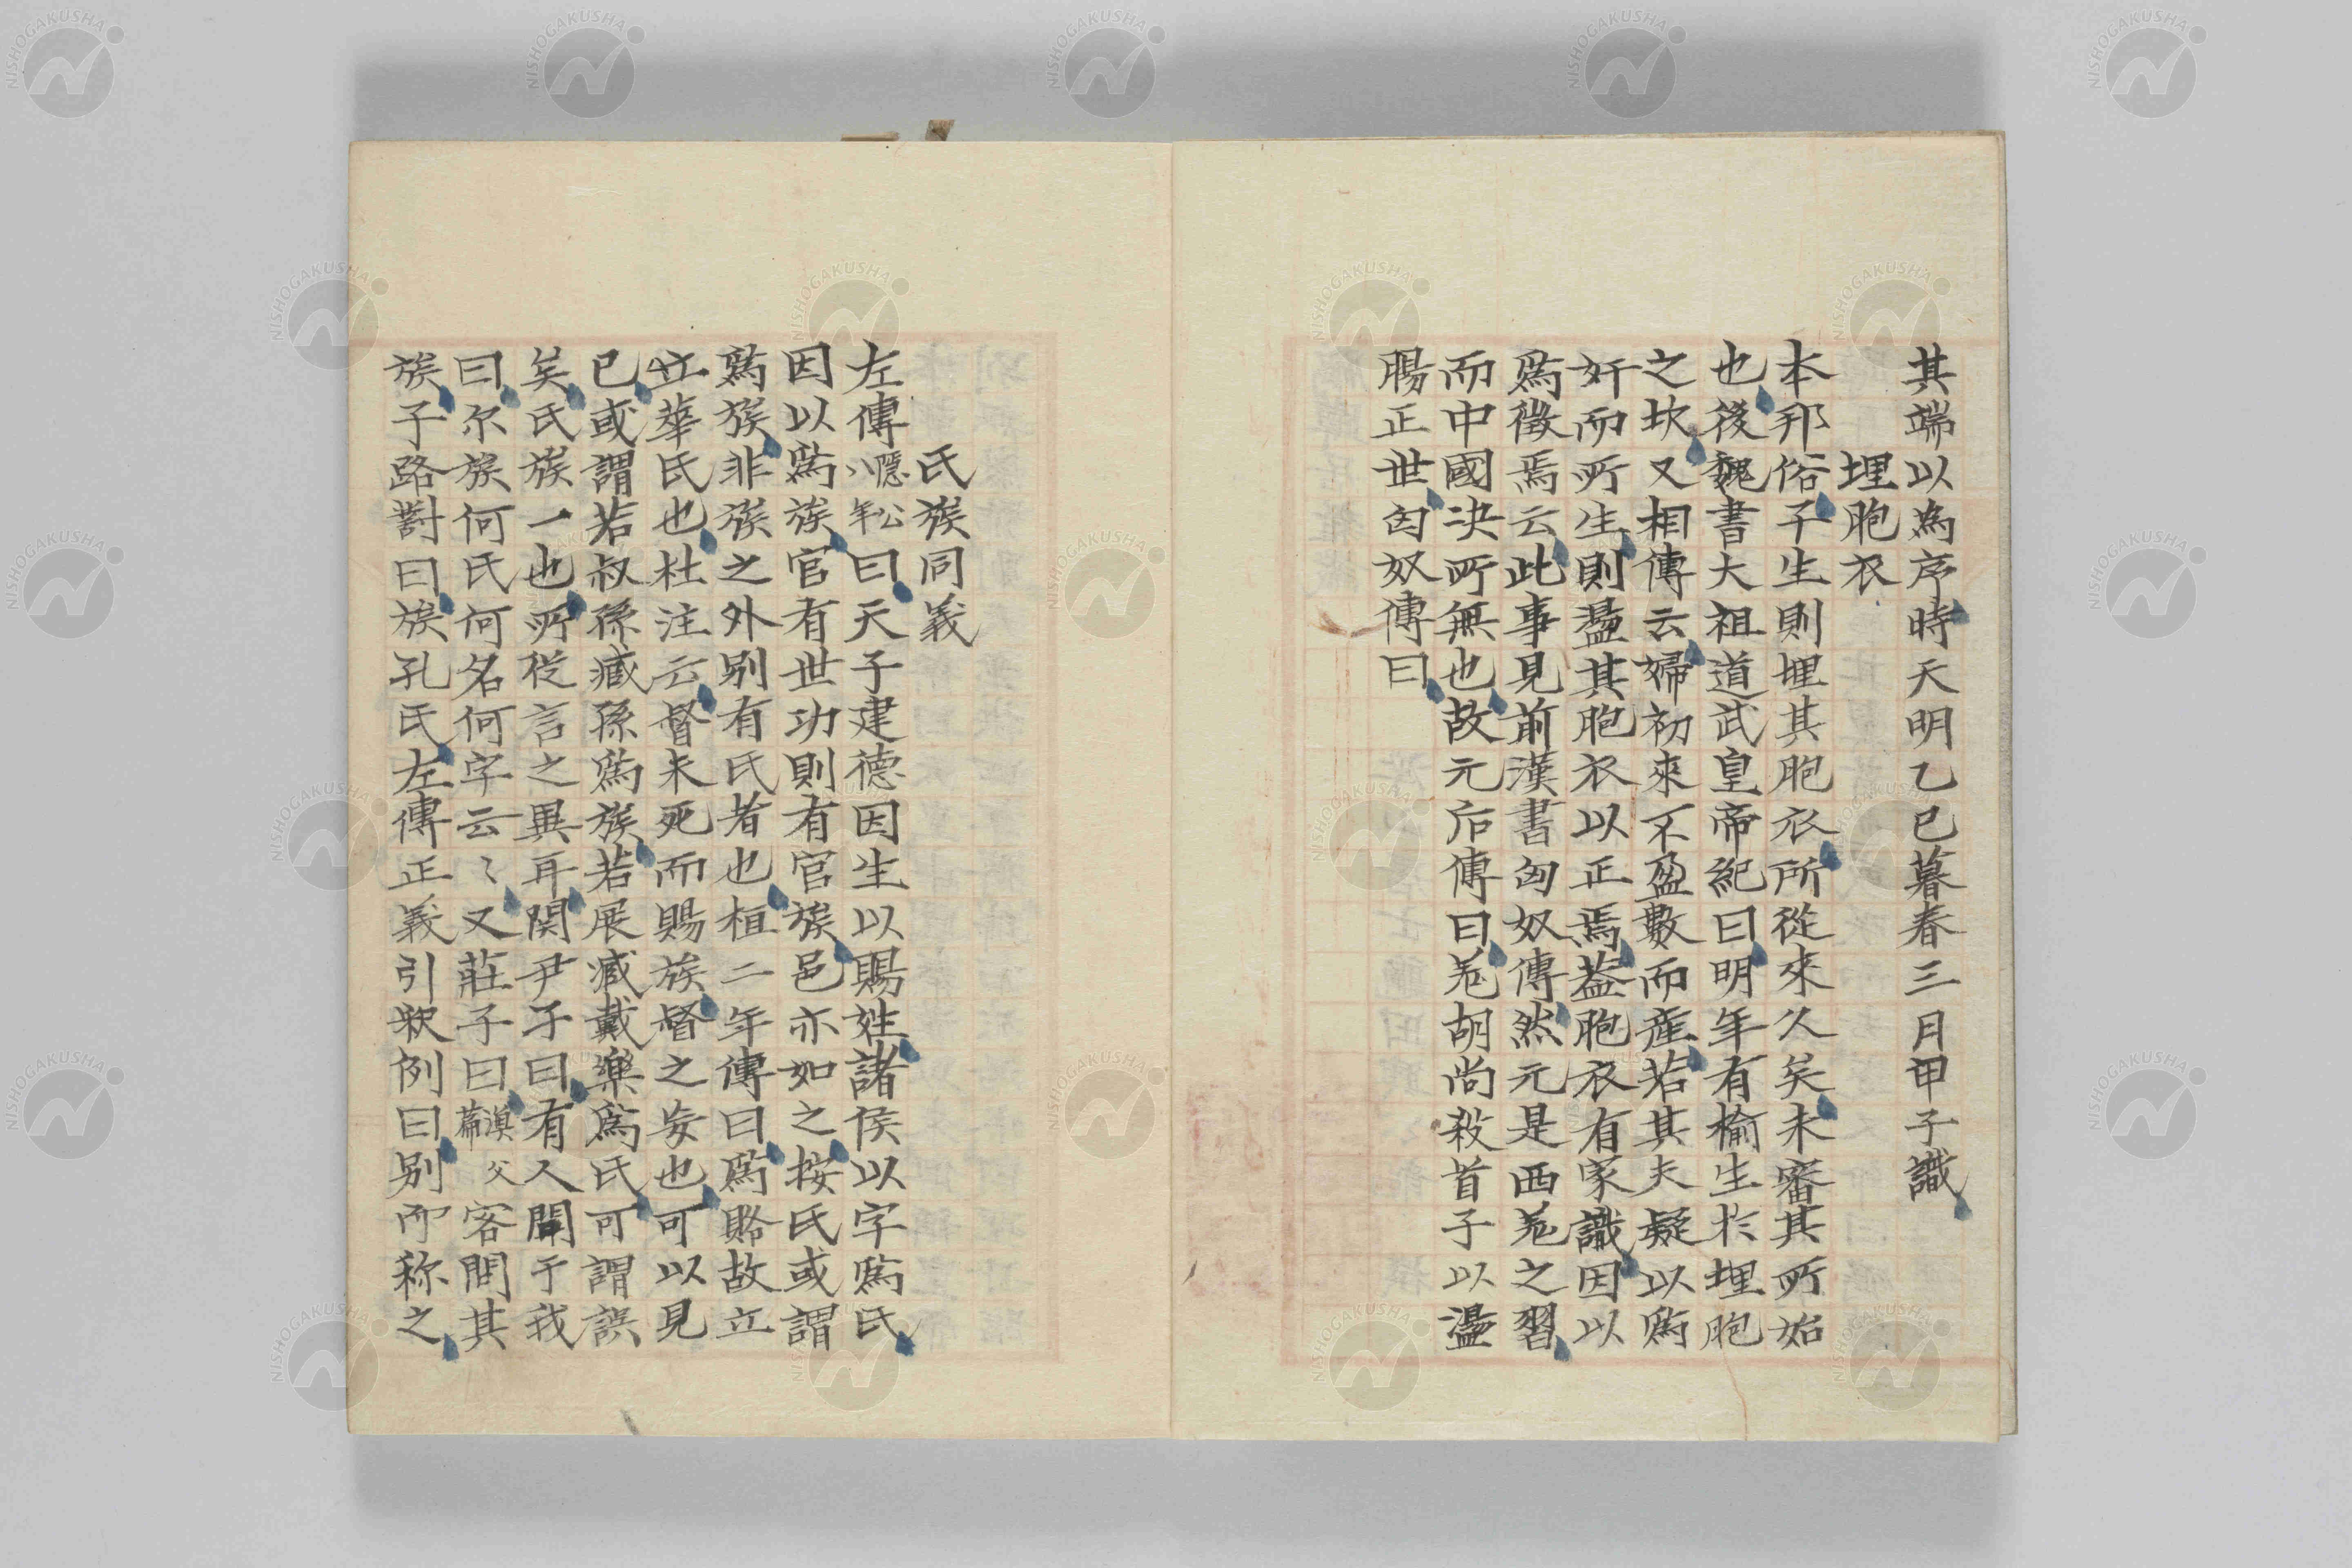 其端以為序時天明乙巳暮春三月甲子識
埋胞衣
本邦俗子生則埋其胞衣所從來久矣未審其所始
也後魏書大祖道武皇帝紀曰明年有榆生於埋胞
之坎又相傳云婦初來不盈數而產若其夫疑以爲
奸而所生則盪其胞衣以正焉蓋胞衣有家識因以
爲徵焉云此事見前漢書匈奴傳然元是西羌之習
而中國决所無也故元后傳曰羌胡尚殺首子以盪
腸正世匈奴傳曰
氏族同義
左傳隱公八年曰天子建德因生以賜姓諸侯以字爲氏
因以爲族官有世功則有官族邑亦如之按氏或謂
爲族非族之外別有氏者也桓二年傳曰爲賂故立
立華氏也杜注云督未死而賜族督之妄也可以見
已或謂若叔孫臧孫爲族若展臧戴樂爲氏可謂誤
矣氏族一也所従言之異耳関尹子曰有人問于我
曰尓族何氏何名何字云〻又莊子曰漁父篇客問其
族子路對曰族孔氏左傳正義引釈例曰別而称之
NISHOGAKUSHA